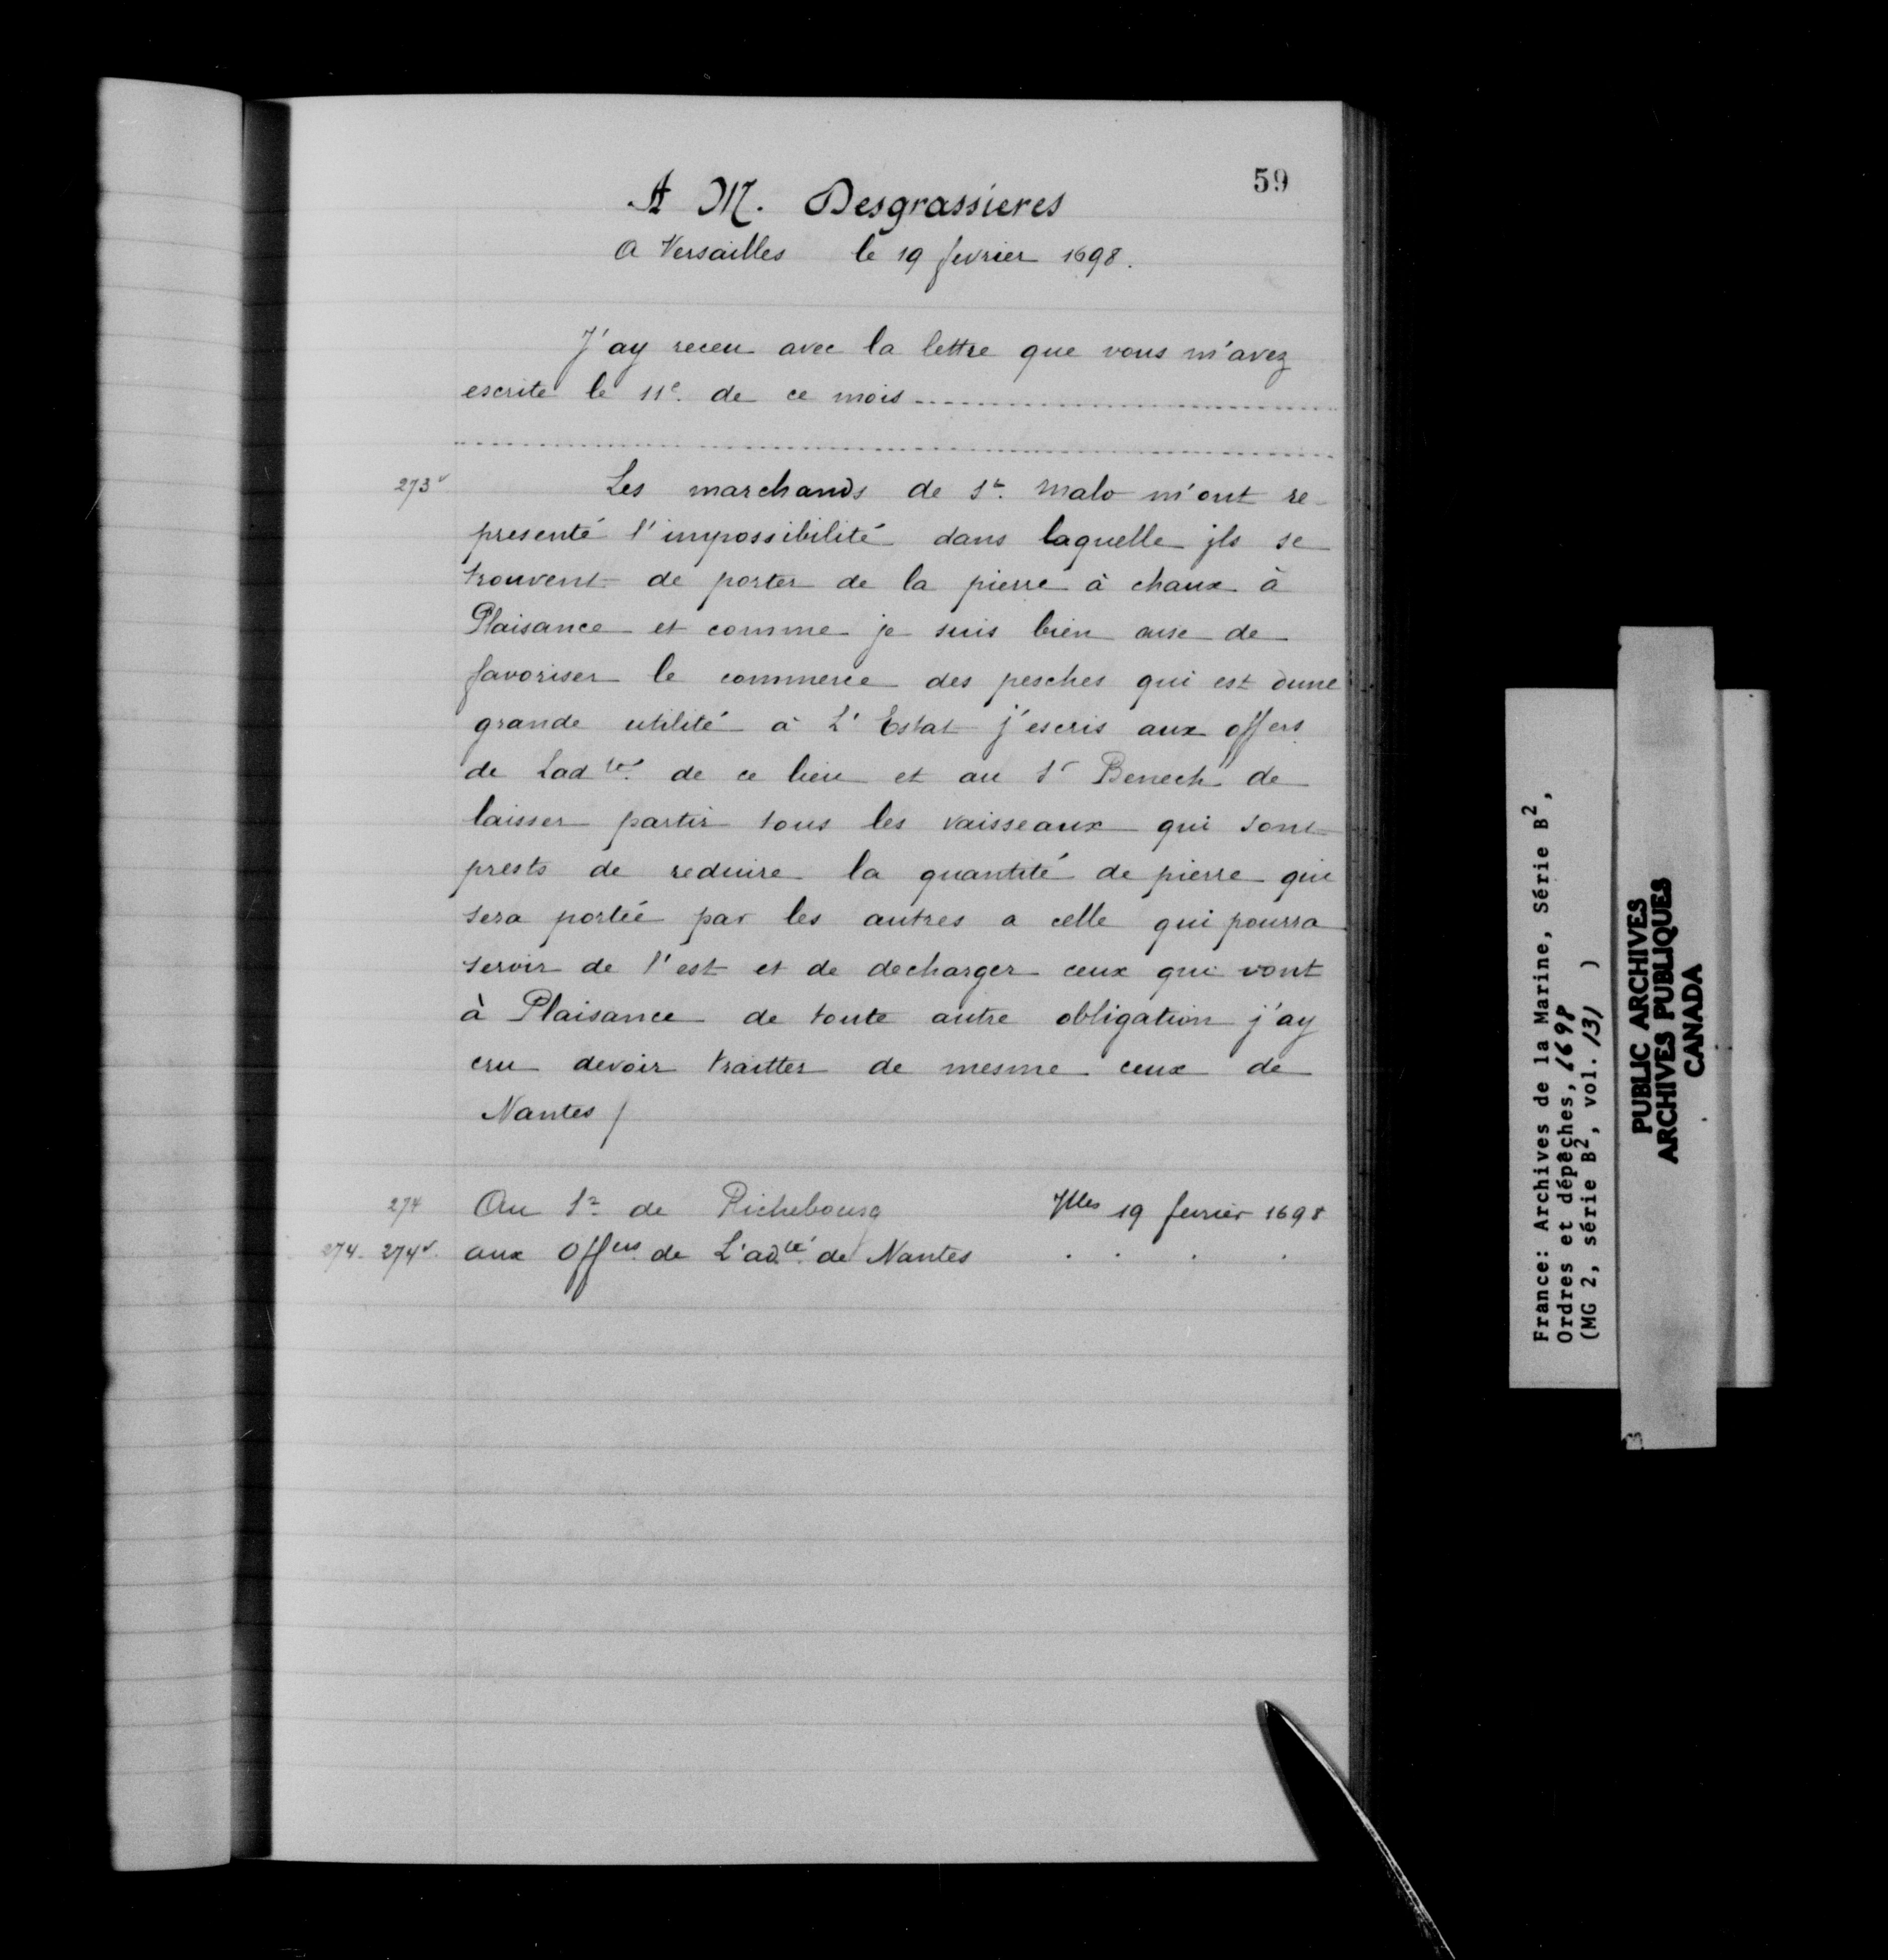 59
A M. Desgrassieres
A Versailles le 19 fevrier 1698.
J'ay receu avec la lettre que vous m'avez
escrite le 11e. de ce mois
273v Les marchands de St. Malo m'ont re-
presenté l'impossibilité dans laquelle jls se
trouvent de porter de la pierre à chaux à
Plaisance et comme je suis bien aise de
favoriser le commerce des pesches qui est dune
grande utilité à L'Estat j'escris aux offers
de Ladté. de ce lieu et au Sr Benech de
laisser partir tous les vaisseaux qui sont
prests de reduire la quantité de pierre qui
sera portée par les autres a celle qui pourra
servir de l'est et de decharger ceux qui vont
à Plaisance de toute autre obligation j'ay
cru devoir traitter de mesme ceux de
Nantes /
274 Au Sr de Richebourg Vlles 19 fevrier 1698
274. 274v. aux Offers. de L'adté. de Nantes . . . .
France: Archives de la Marine, Série B2,
Ordres et dépêches, 1698
(MG 2, série B2, vol. 131 )
PUBLIC ARCHIVES
ARCHIVES PUBLIQUES
CANADA